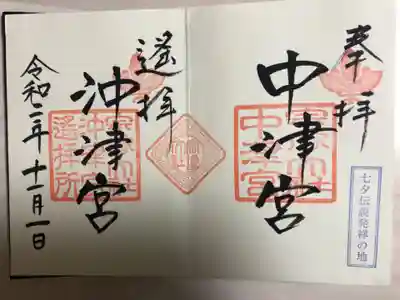 奉拝
中津宮
中津宮
七夕伝説発祥の地
遙拝
沖津宮
沖津宮
遙拝所
令和二年十一月一日